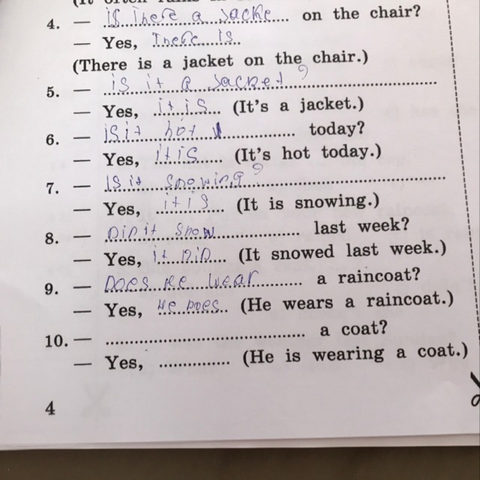 4. — is There a Jacke on the chair?
— Yes, There is
(There is a jacket on the chair.)
5. — is it a Jacket?
— Yes, it is (It's a jacket.)
6. — is it hot today?
— Yes, it is (It's hot today.)
7. — Is it snowing?
— Yes, it is (It is snowing.)
8. — Did it snow last week?
— Yes, it did (It snowed last week.)
9. — Does He wear a raincoat?
— Yes, He does (He wears a raincoat.)
10. — .......... a coat?
— Yes, .......... (He is wearing a coat.)
4